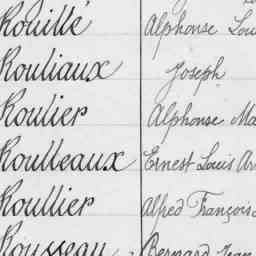 Rouillé Alphonse Lou
Rouliaux Joseph
Roulier Alphonse Ma
Roulleaux Ernest Louis Ar
Roullier Alfred François
Rousseau Bernard Jean